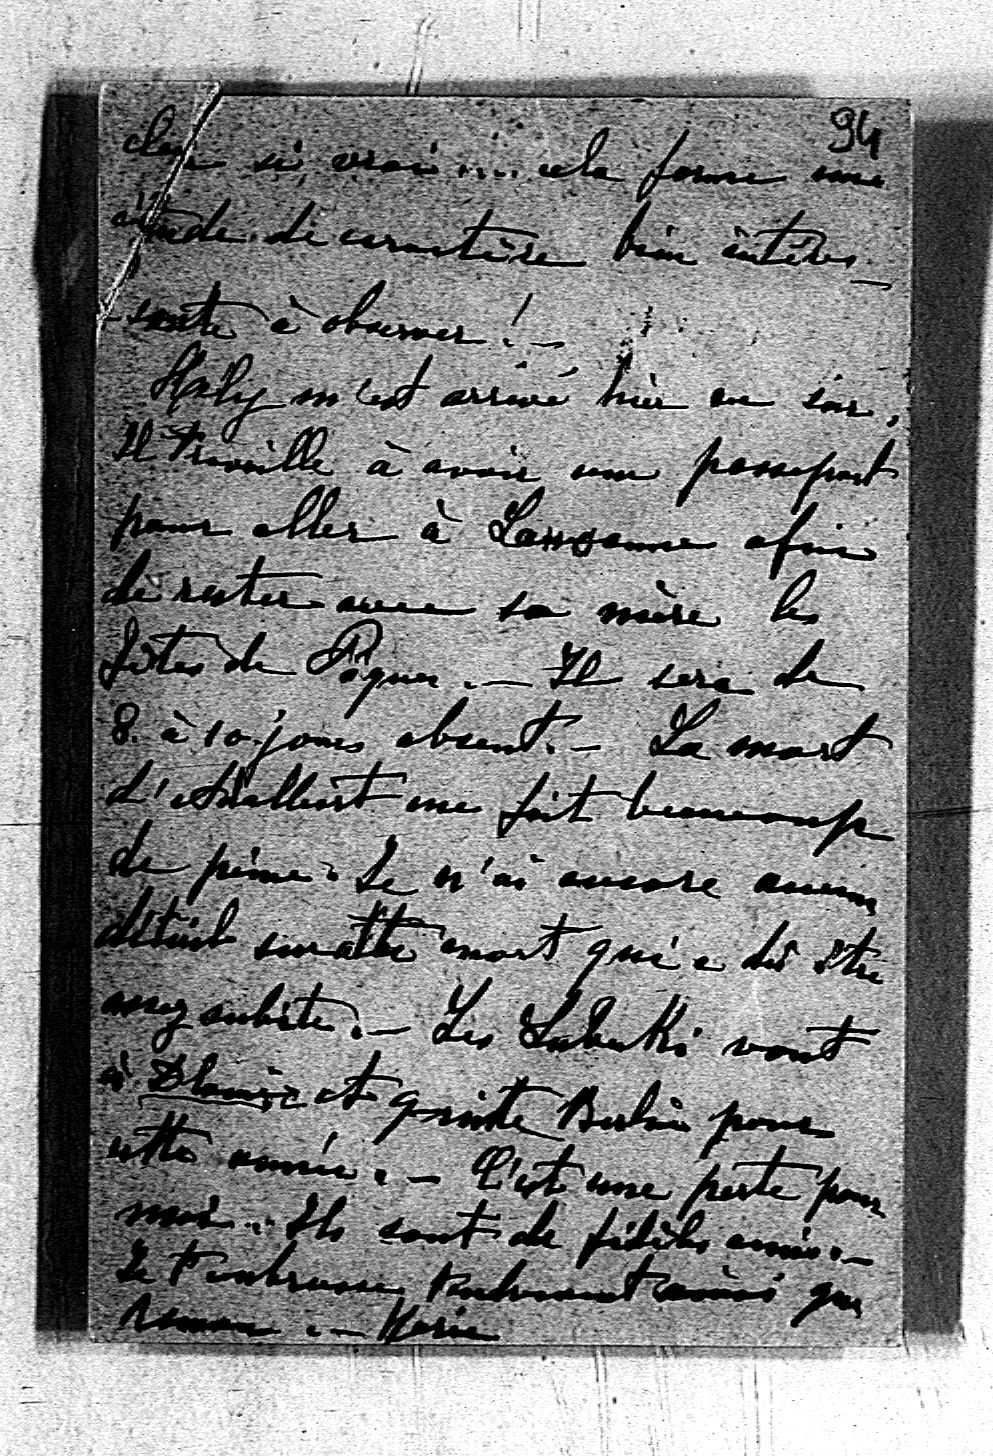 94
si vrai .... cela forme une
étude de caractère bien intéres_
sante à observer ! _
m'est arrivé hier au soir,
Il travaille à avoir un passeport
pour aller à Lausanne afin
de rester avec sa mère les
fêtes de Pâques. _ Il sera de
8. à 10 jours absent. _ La mort
me fait beaucoup
de peine. Je n'ai encore aucun
détail sur cette mort qui a dû être
assez subite. _ Les vont
à et quitte Berlin pour
cette année. _ C'est une perte pour
moi.. Ils sont de fidèles amis. _
Je t'embrasse tendrement ainsi que
Roman . _ Marie